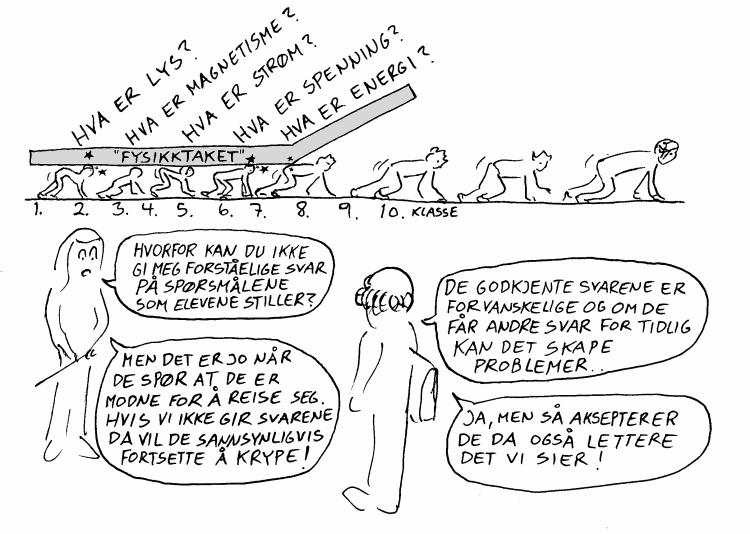 HVA ER LYS?
HVA ER MAGNETISME?
HVA ER STRØM?
HVA ER SPENNING?
HVA ER ENERGI?
"FYSIKKTAKET"
1. 2. 3. 4. 5. 6. 7. 8. 9. 10. KLASSE
HVORFOR KAN DU IKKE
GI MEG FORSTÅELIGE SVAR
PÅ SPØRSMÅLENE
SOM ELEVENE STILLER?
DE GODKJENTE SVARENE ER
FOR VANSKELIGE OG OM DE
FÅR ANDRE SVAR FOR TIDLIG
KAN DET SKAPE
PROBLEMER..
MEN DET ER JO NÅR
DE SPØR AT DE ER
MODNE FOR Å REISE SEG.
HVIS VI IKKE GIR SVARENE
DA VIL DE SANNSYNLIGVIS
FORTSETTE Å KRYPE!
JA, MEN SÅ AKSEPTERER
DE DA OGSÅ LETTERE
DET VI SIER!